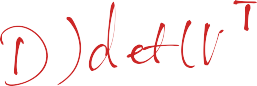 D) det(V^T